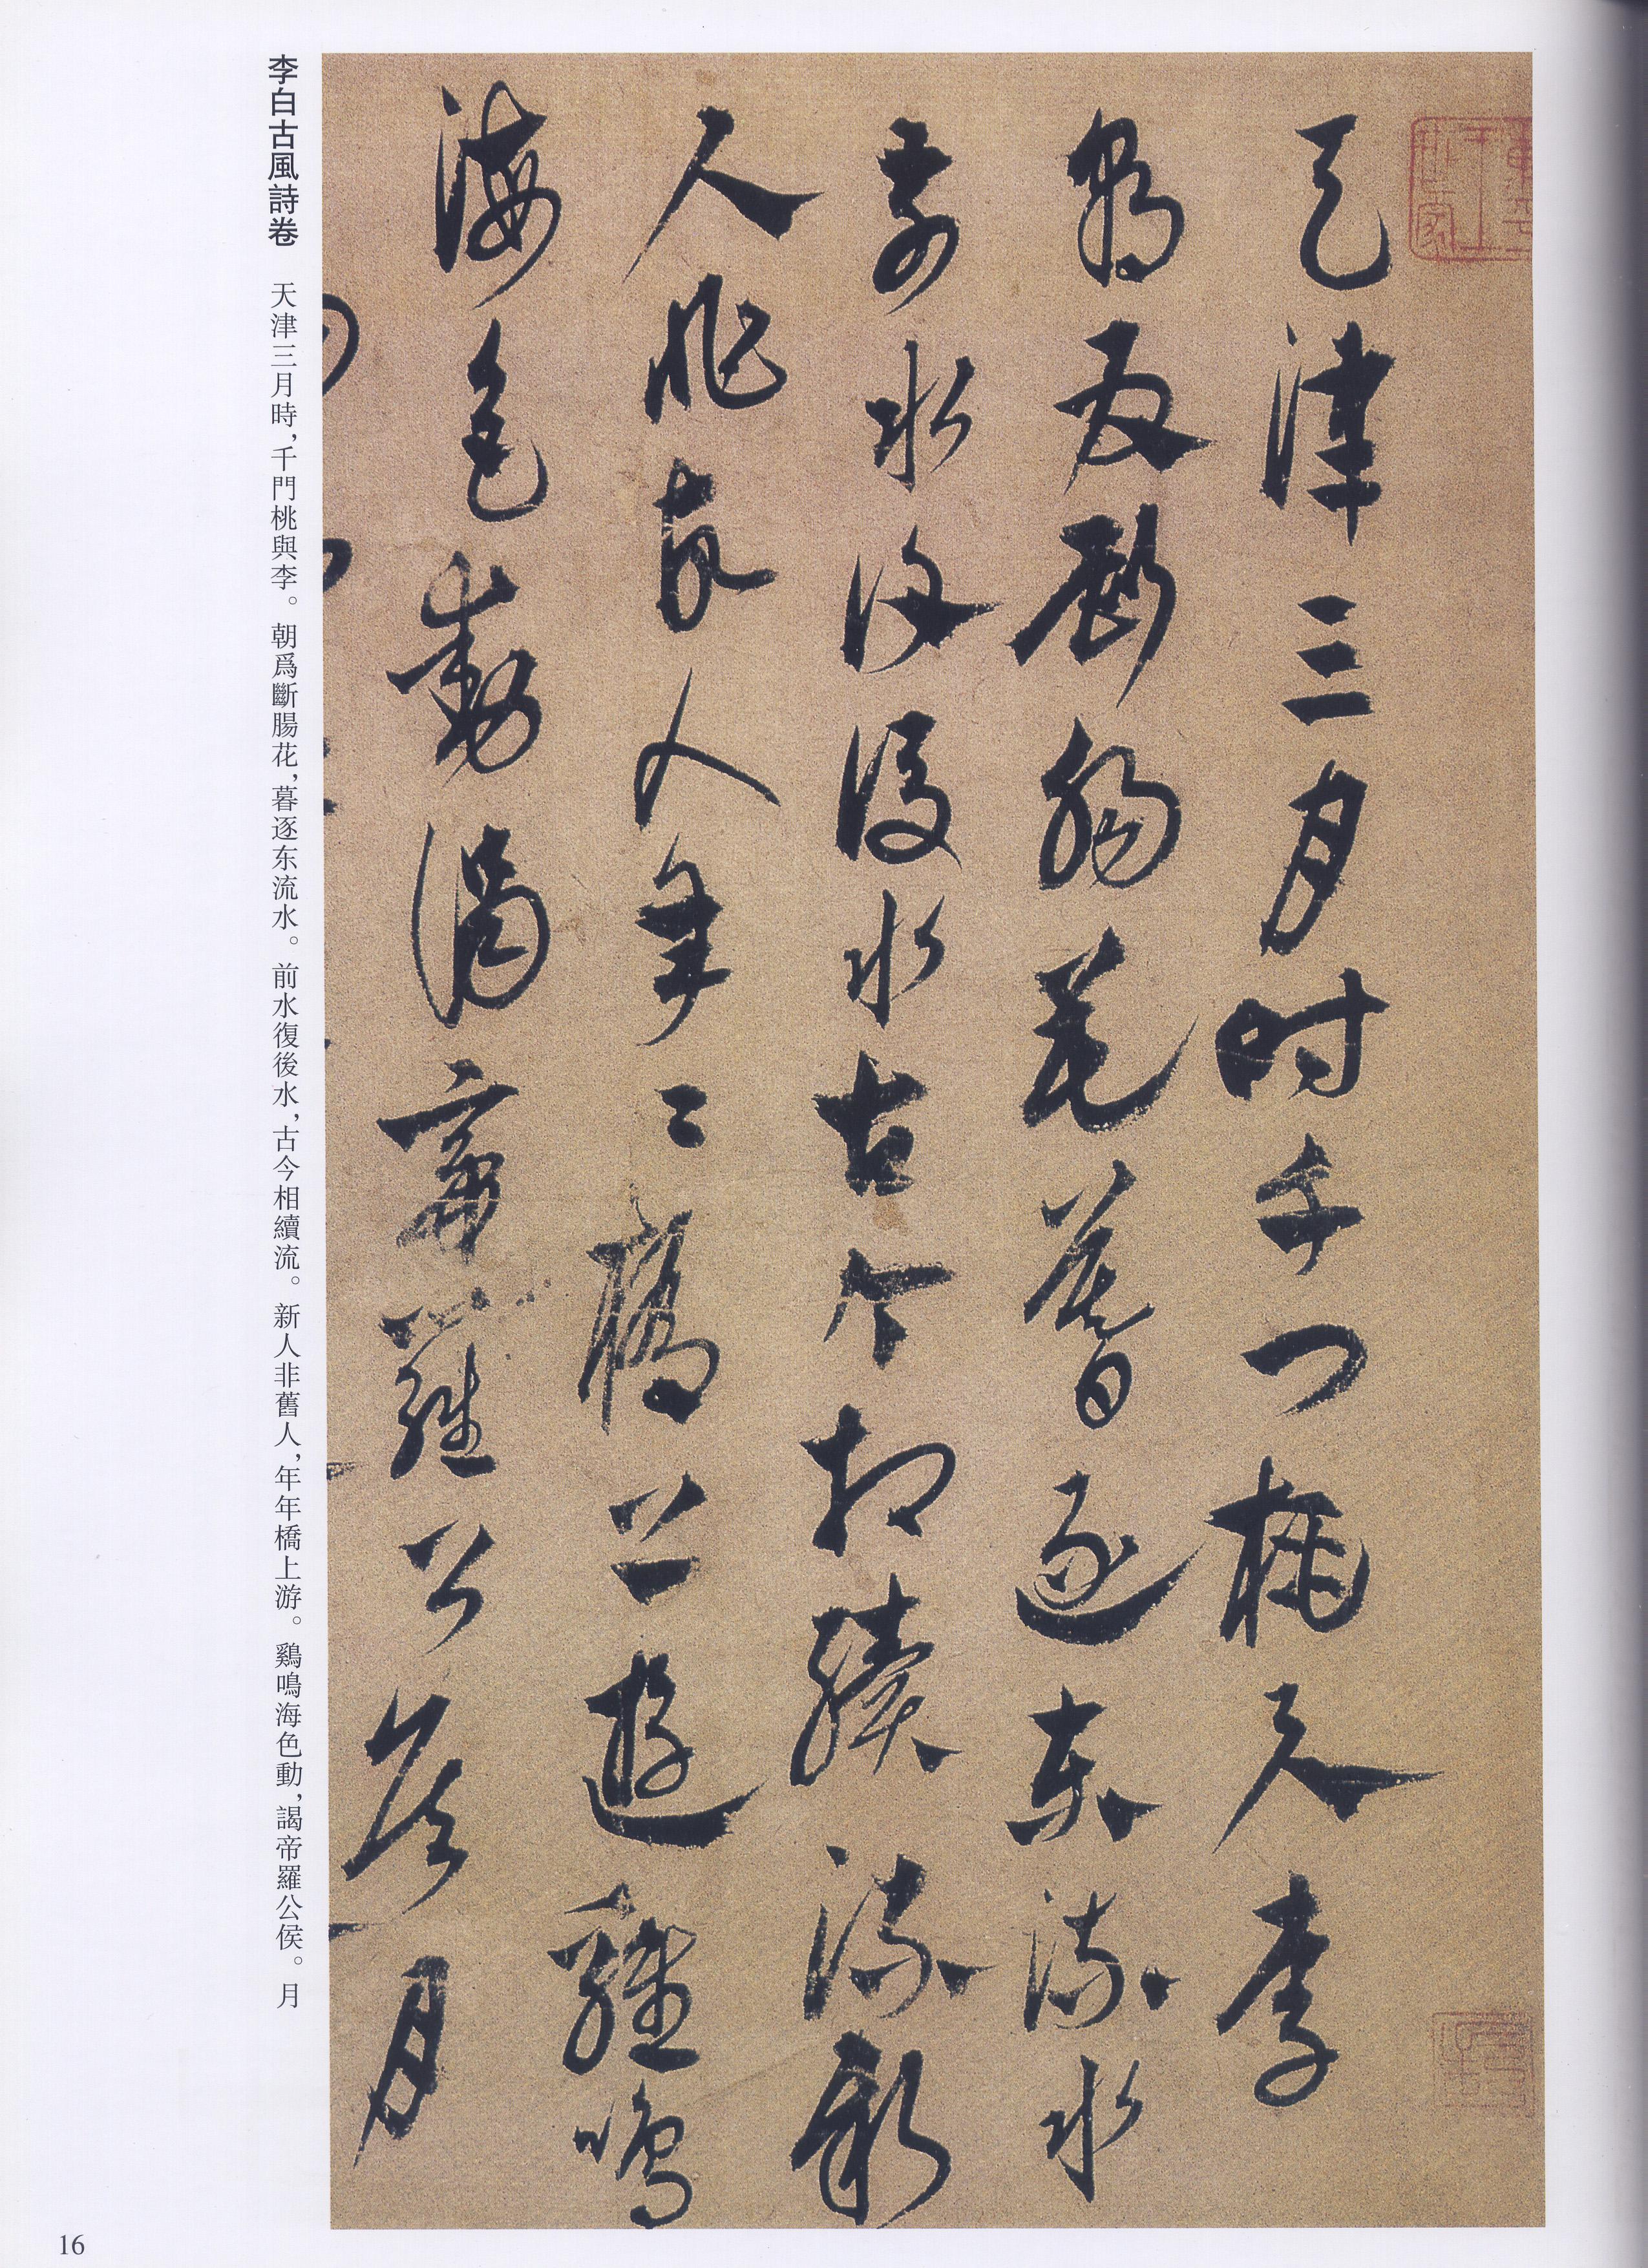 天津三月时千门桃与李
朝为断肠花暮逐东流水
前水復後水古今相續流新
人非舊人年〻橋上遊雞鳴
海色動謁帝羅公侯月
李白古風詩卷　天津三月時，千門桃與李。朝爲斷腸花，暮逐东流水。前水復後水，古今相續流。新人非舊人，年年橋上游。鷄鳴海色動，謁帝羅公侯。月
16